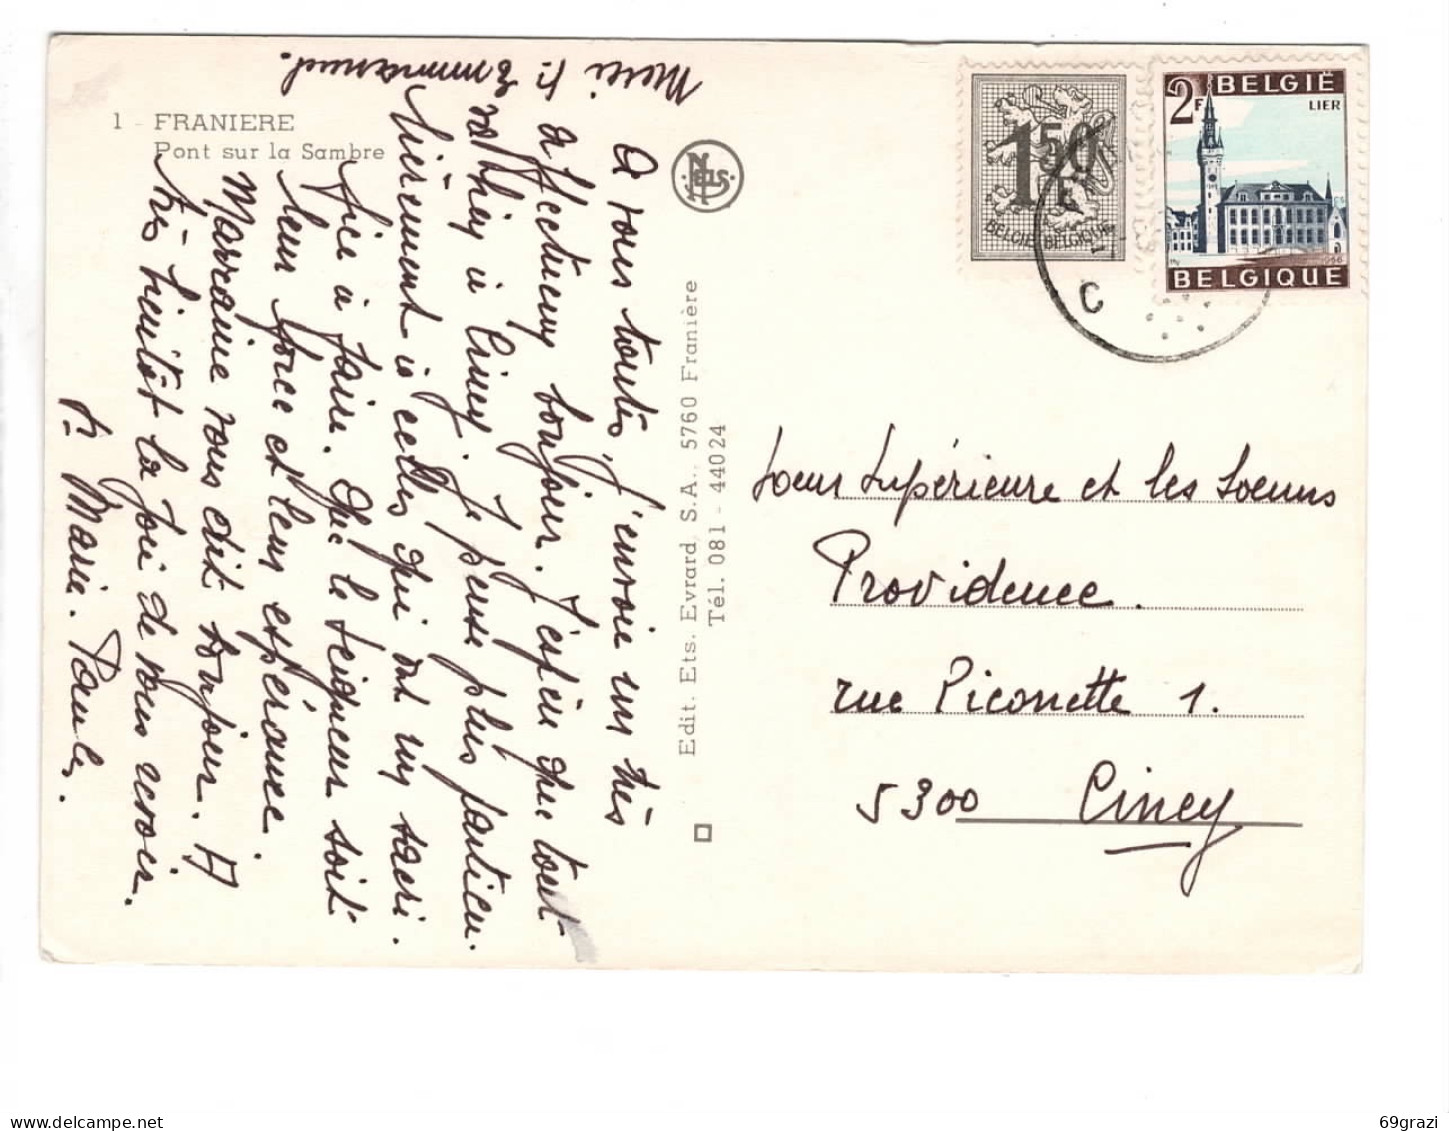 1 - FRANIERE
Pont sur la Sambre
Merci Sr Emmanuel.
A vous toutes, j'envoie un très
affectueux bonjour. J'espère que tout
va bien à Ciney. Je pense plus particu-
lièrement à celles qui ont un sacri-
fice à faire. Que le Seigneur soit
leur force et leur espérance.
Marraine vous dit bonjour. A
très bientôt la joie de vous revoir.
Sr Marie-Paule.
Edit. Ets. Evrard, S.A., 5760 Franière
Tél. 081 - 44024
Nels
1 50 F
BELGIE BELGIQUE
2F BELGIË
LIER
1966
BELGIQUE
C
Soeur Supérieure et les Soeurs
Providence.
rue Piconette 1.
5300 Ciney
delcampe.net
69grazi